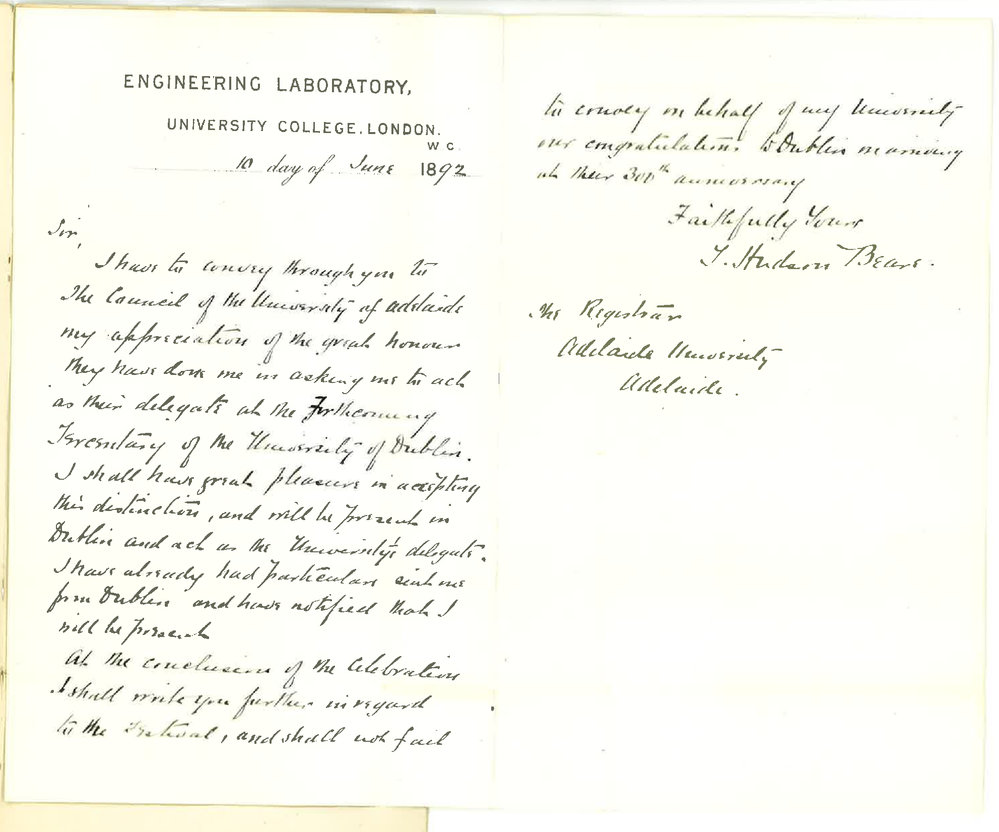 ENGINEERING LABORATORY,
UNIVERSITY COLLEGE, LONDON.
W C.
10 day of June 1892
Sir,
I have to convey through you to
The Council of the University of Adelaide
my appreciation of the great honour
they have done me in asking me to act
as their delegate at the Forthcoming
Tercentary of the University of Dublin.
I shall have great pleasure in accepting
this distinction, and will be present in
Dublin and act as the University's delegate.
I have already had particulars sent me
from Dublin and have notified that I
will be present
At the conclusion of the Celebration
I shall write you further in regard
to the Festival, and shall not fail
to convey on behalf of my University
our congratulations to Dublin on arriving
at their 300th anniversary
Faithfully Yours
T. Hudson Beare.
The Registrar
Adelaide University
Adelaide.